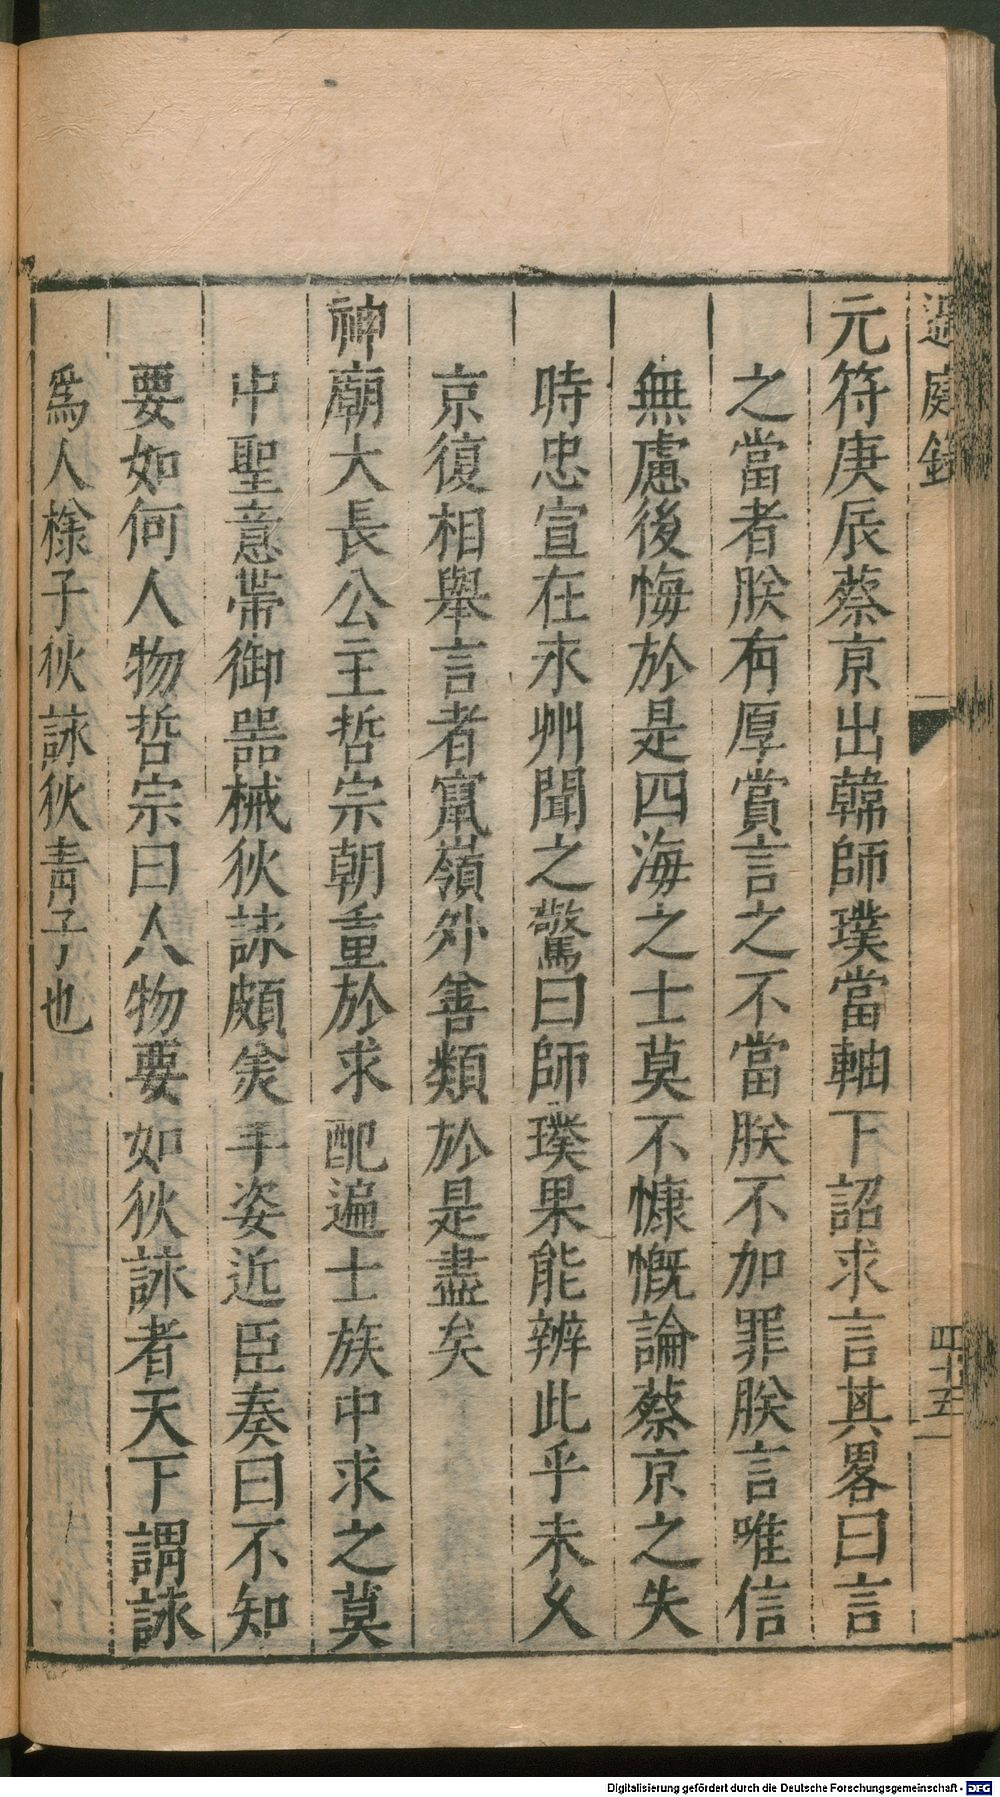 過庭錄
四十五
元符庚辰蔡京出韓師璞當軸下詔求言其畧曰言
之當者朕有厚賞言之不當朕不加罪朕言唯信
無慮後悔於是四海之士莫不慷慨論蔡京之失
時忠宣在永州聞之驚曰師璞果能辨此乎未乆
京復相舉言者竄嶺外善類於是盡矣
神廟大長公主哲宗朝重於求配遍士族中求之莫
中聖意帶御噐械狄詠頗美丰姿近臣奏曰不知
要如何人物哲宗曰人物要如狄詠者天下謂詠
爲人樣子狄詠狄青子也
Digitalisierung gefördert durch die Deutsche Forschungsgemeinschaft - DFG